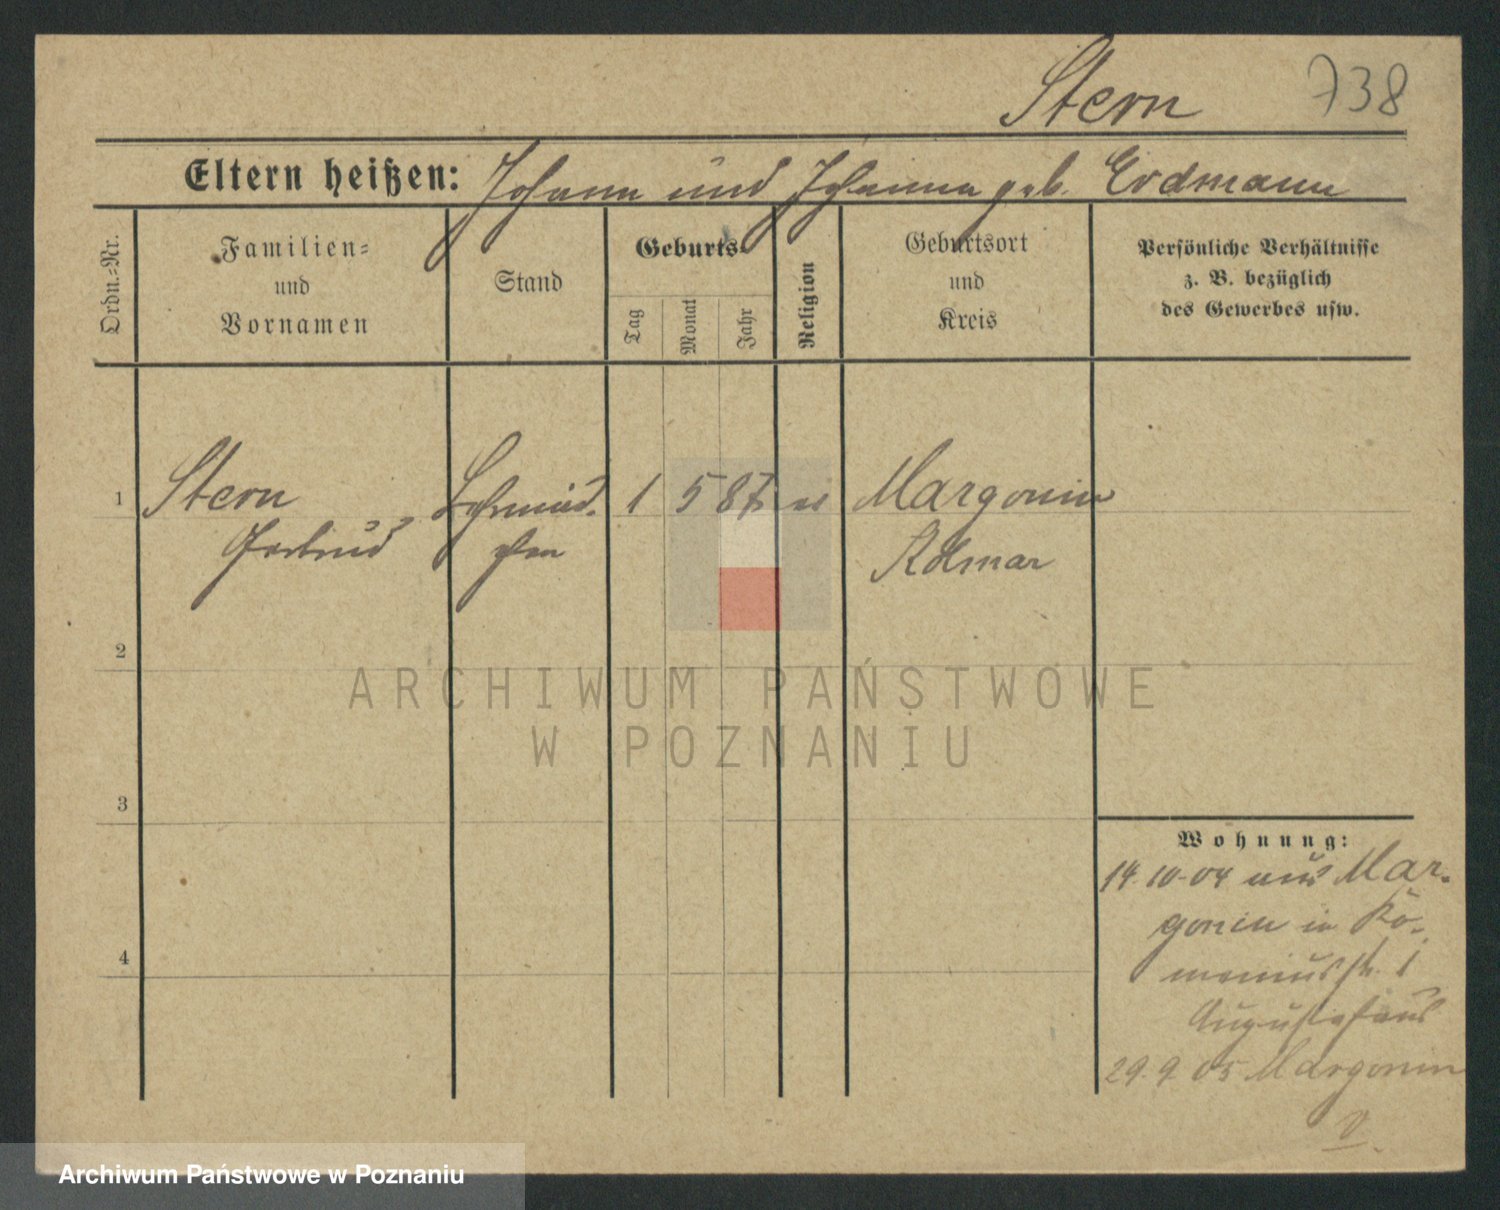 Stern 738
Eltern heißen: Johann und Johanna geb. Erdmann
Ordn.=Nr.
Familien=
und
Vornamen
Stand
Geburts=
Tag
Monat
Jahr
Religion
Geburtsort
und
Kreis
Persönliche Verhältnisse
z. B. bezüglich
des Gewerbes usw.
1 Stern 1 5 87 Margonin
Gertrud Kolmar
2
3
4
Wohnung:
14.10.04 aus Mar-
gonin in Ko-
meniusstr. 1
Augustahaus
29.9.05 Margonin
ARCHIWUM PAŃSTWOWE
W POZNANIU
Archiwum Państwowe w Poznaniu